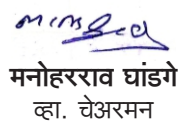 मनोहरराव घांडगे
व्हा. चेअरमन